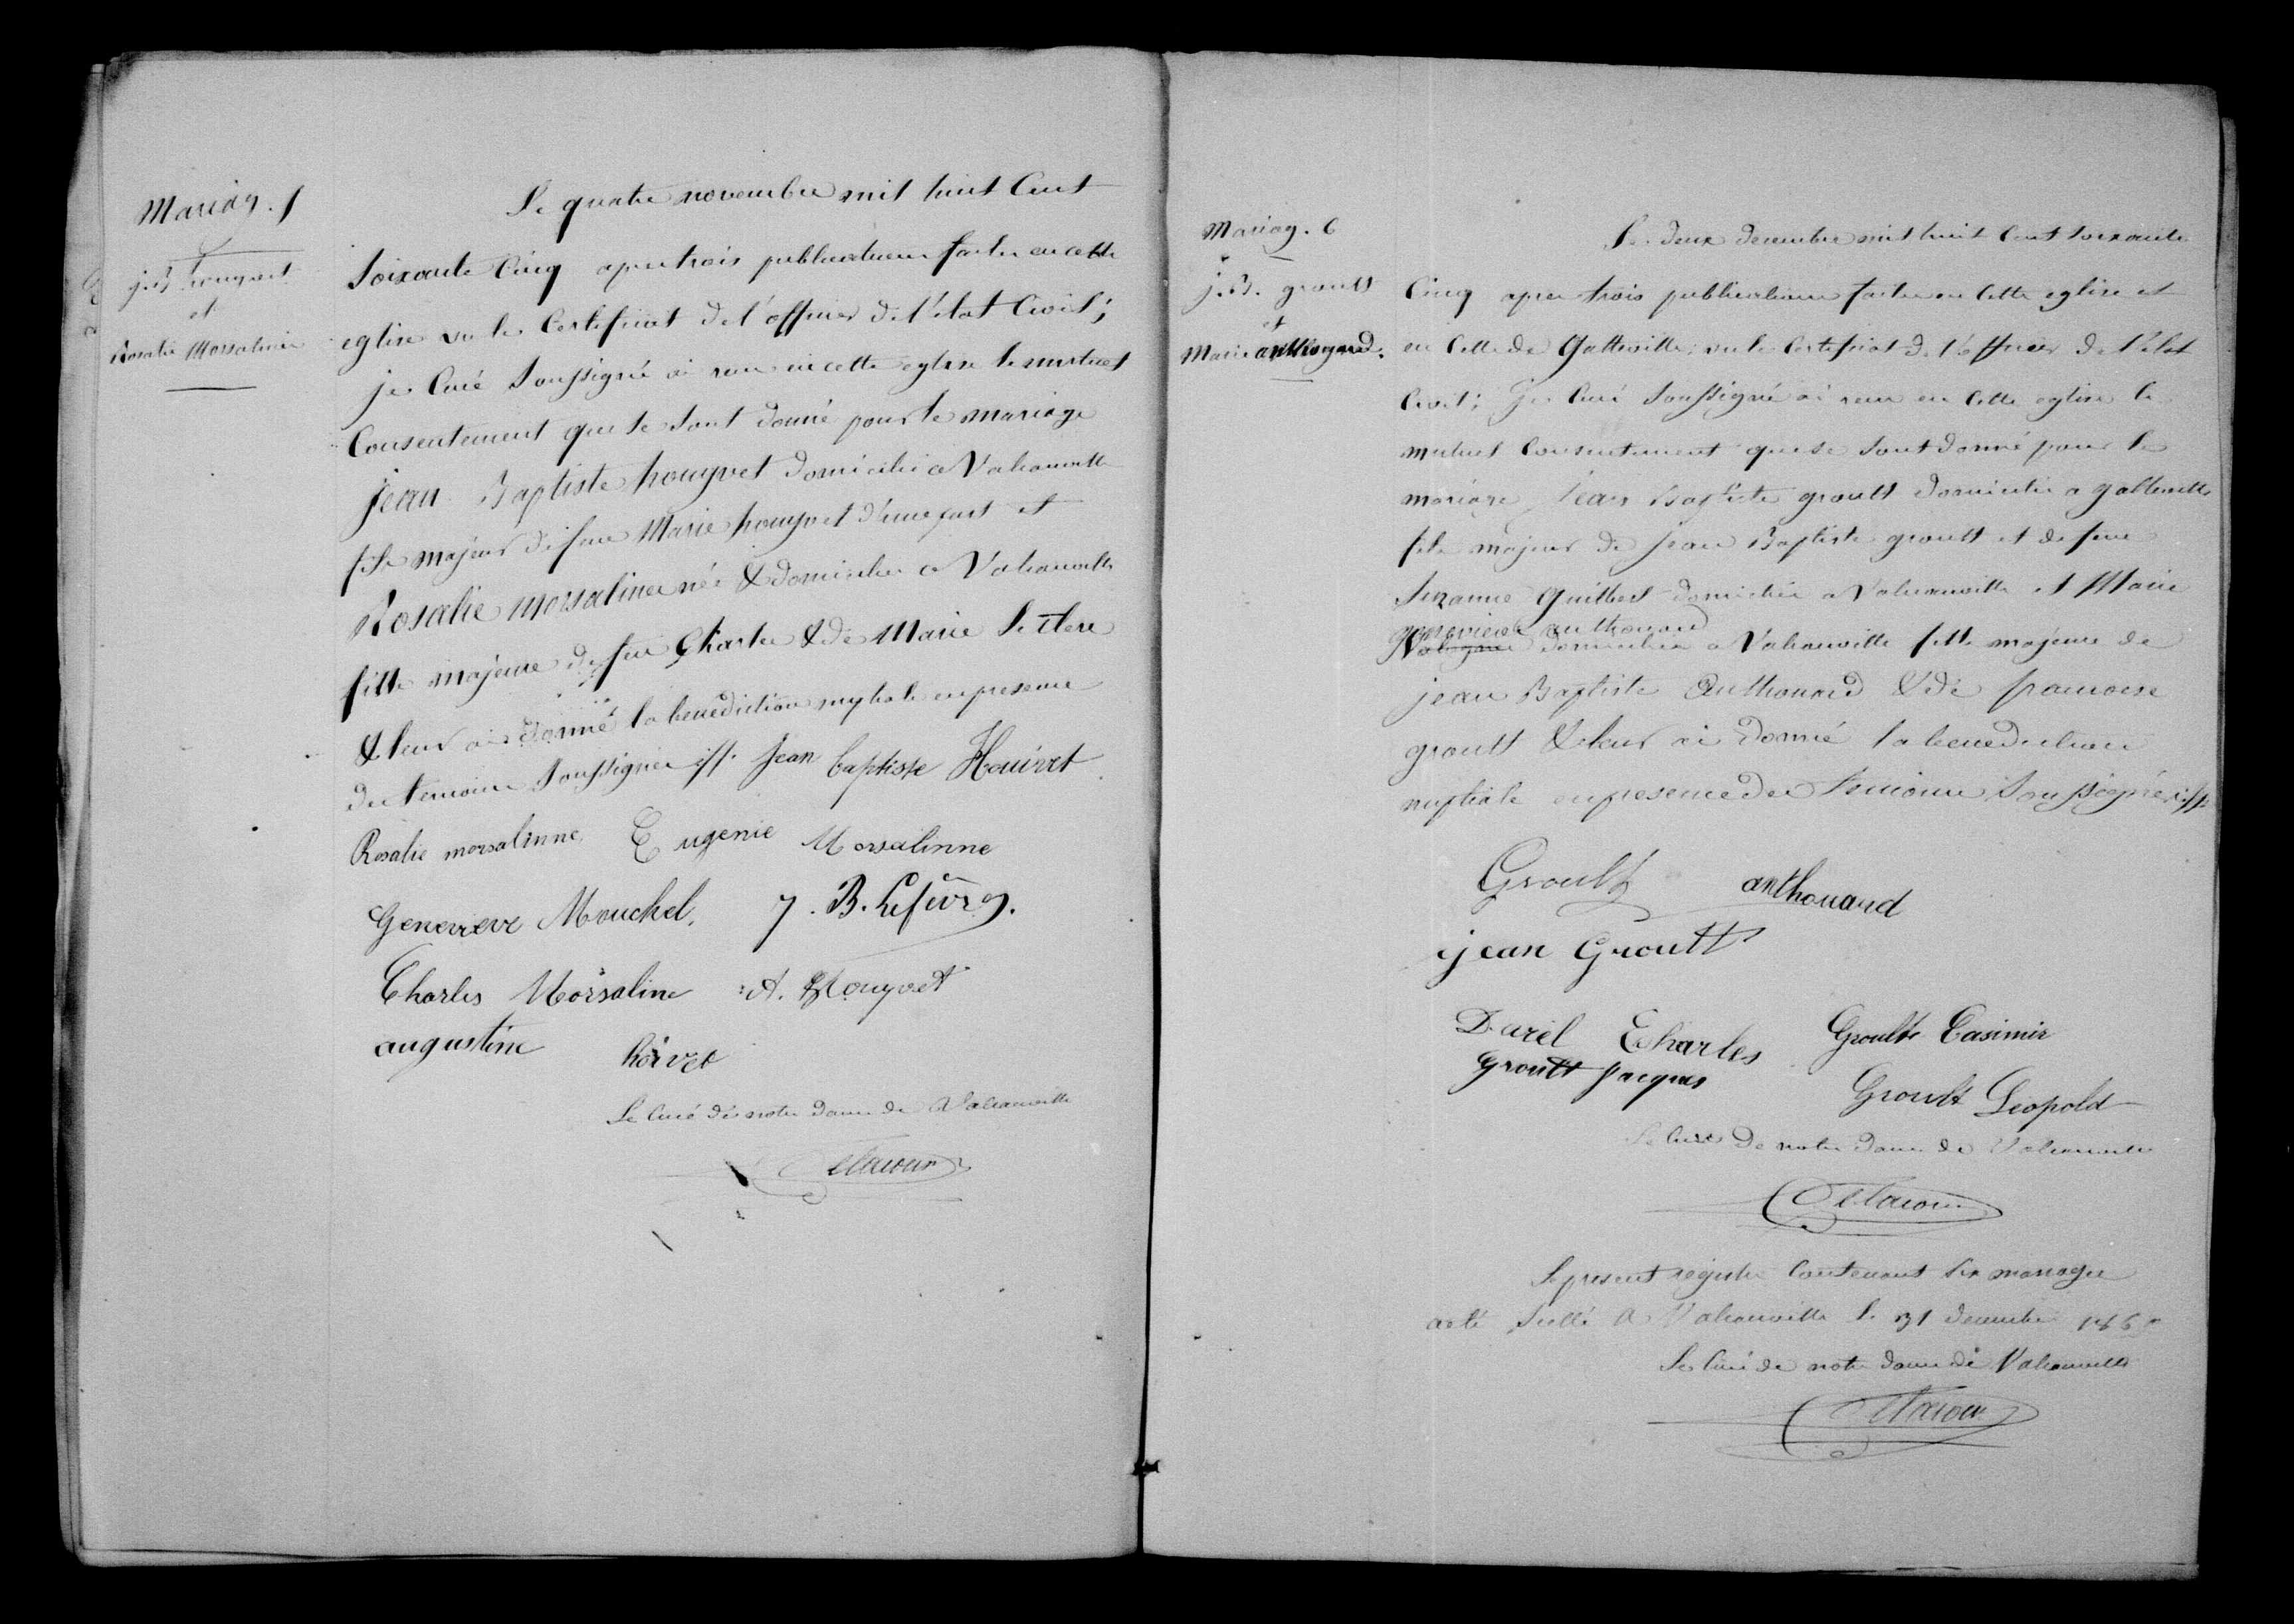 Mariag. 5
j. B houyvet
et
Rosalie Morsaline
Le quatre novembre mil huit Cent
Soixante Cinq apres trois publications faites en cette
eglise vu le Certificat de l'officier de l'état Civil;
je Curé Soussigné ai recu en cette eglise le mutuel
Consentement que se sont donné pour le mariage
jean Baptiste houyvet domicilié a Valcanville
fils majeur de feue Marie houyvet d'une part et
Rosalie Morsaline née & domiciliée a Valcanville
fille majeure de feu Charles & de Marie
& leur ai donné la benediction nuptiale en presence
des temoins Soussignés Jean baptiste Houivet
Rosalie morsalinne Eugenie Morsalinne
Genevieve Mouchel, J. B. Lefèvre.
Charles Morsaline A. Houyvet
augustine hoivet
Le Curé de notre dame de Valcanville
Mariag. 6
j. B. groult
et
Marie anthouard.
Le deux decembre mil huit Cent soixante
Cinq apres trois publications faites en Cette eglise et
en Celle de Gatteville; vu le Certificat de l'officier de l'état
Civil; je Curé Soussigné ai recu en Cette eglise le
mutuel Consentement que se sont donné pour le
mariage jean Baptiste groult domicilié a gatteville
fils majeur de jean Baptiste groult et de feue
Suzanne Guilbert domiciliée a Valcanville et Marie
genevieve anthouard
domiciliée a Valcanville fille majeure de
jean Baptiste Anthouard & de francoise
groult & leur ai donné la benediction
nuptiale en presence des temoins Soussignés
Groult anthouard
jean Groult
Durel Charles Groult Casimir
Groult Jacques
Groult Leopold
Le Curé de notre dame de Valcanville
Le present registre Contenant six mariages
a été Scellé a Valcanville le 31 decembre 1865
Le Curé de notre dame de Valcanville